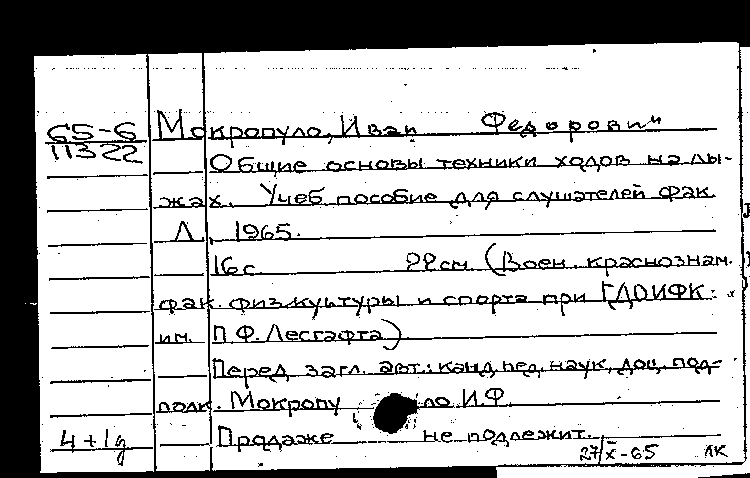 65-6 Мокропуло, Иван Федорович
11322 Общие основы техники ходов на лы-
жах. Учеб. пособие для слушателей фак.
Л., 1965.
16 с. 22 см. (Воен. краснознам.
фак. физ.культуры и спорта при ГДОИФК
им. П.Ф. Лесгафта)
Перед загл. авт.: канд. пед. наук, доц. под-
полк. Мокропуло И.Ф.
4+1д Продаже не подлежит.
27/X-65 ЛК